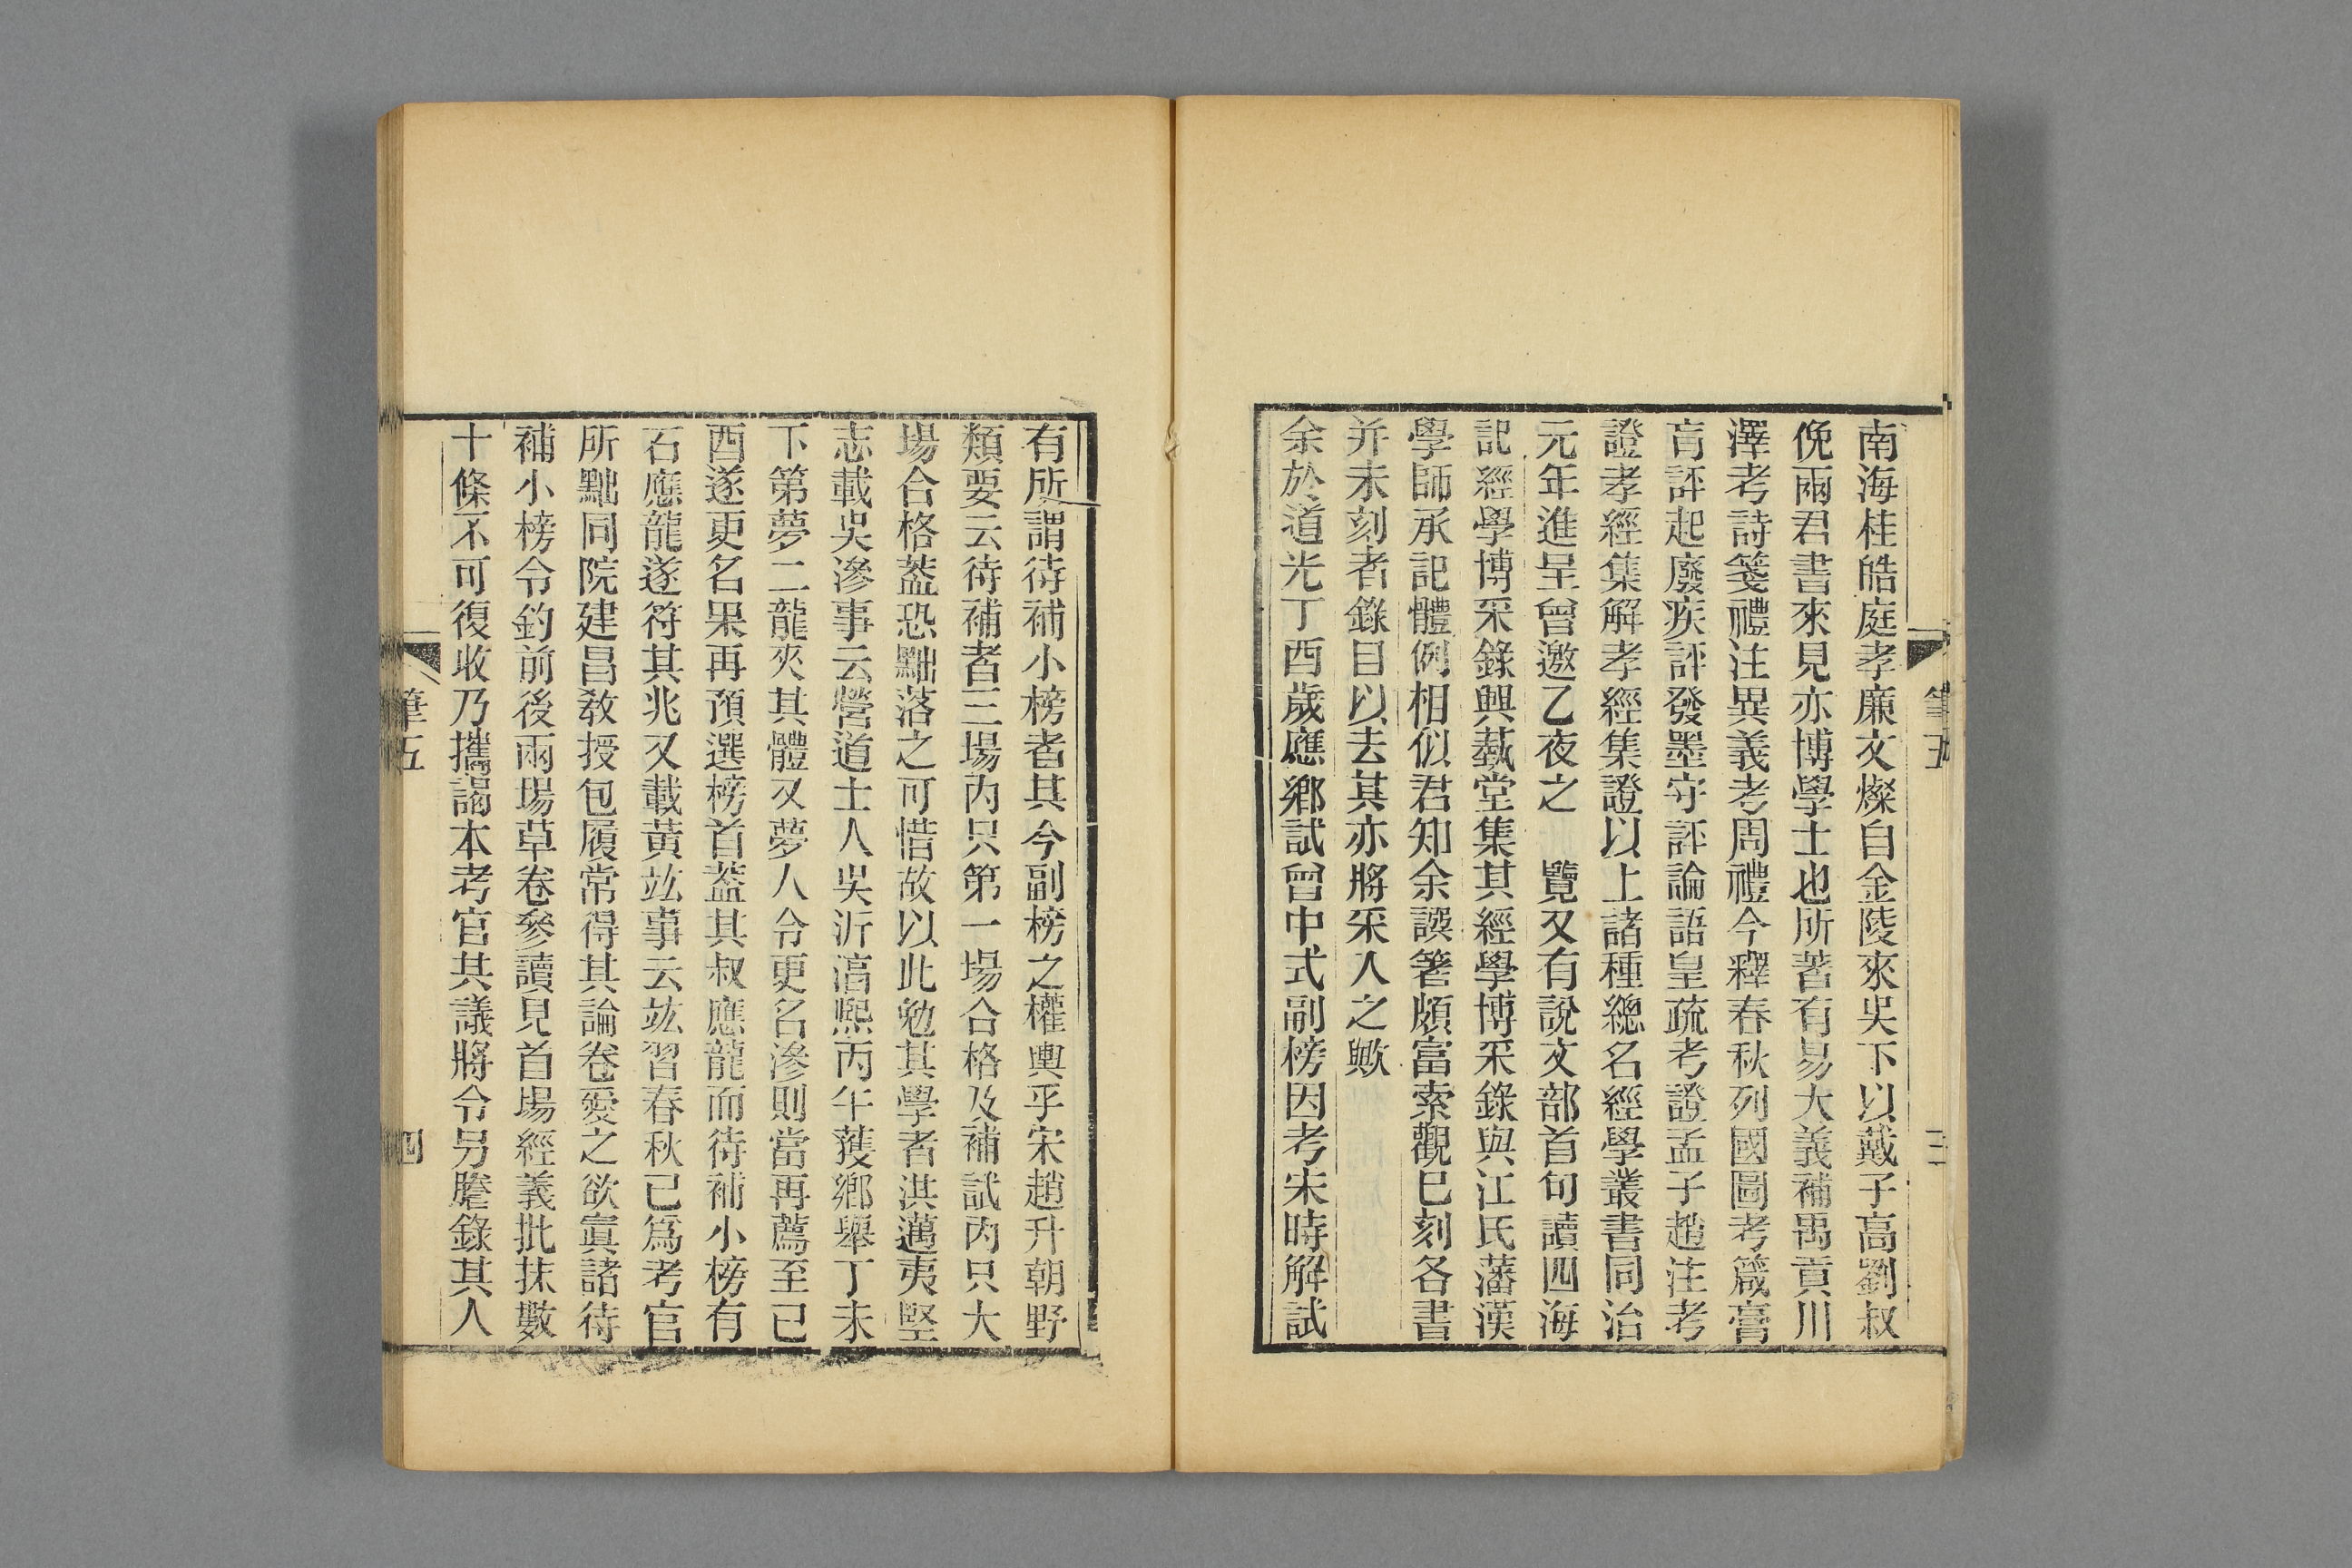 南海桂皓庭孝廉文燦自金陵來吳下以戴子高劉叔
俛兩君書來見亦博學士也所著有易大義補禹貢川
澤考詩箋禮注異義考周禮今釋春秋列國圖考箴膏
肓評起廢疾評發墨守評論語皇疏考證孟子趙注考
證孝經集解孝經集證以上諸種總名經學叢書同治
元年進呈曾邀乙夜之　覽又有說文部首句讀四海
記經學博采錄興藝堂集其經學博采錄與江氏藩漢
學師承記體例相似君知余譔箸頗富索觀已刻各書
并未刻者錄目以去其亦將采入之歟
余於道光丁酉歲應鄉試曾中式副榜因考宋時解試
筆五
三
有所謂待補小榜者其今副榜之權輿乎宋趙升朝野
類要云待補者三場內只第一場合格及補試內只大
場合格葢恐黜落之可惜故以此勉其學者洪邁夷堅
志載吳滲事云營道士人吳沂湻熙丙午薦鄉舉丁未
下第夢二龍夾其體又夢人令更名滲則當再薦至己
酉遂更名果再預選榜首葢其叔應龍而待補小榜有
石應龍遂符其兆又載黃竑事云竑習春秋已爲考官
所黜同院建昌敎授包履常得其論卷愛之欲寘諸待
補小榜令釣前後兩場草卷參讀見首場經義批抹數
十條不可復收乃攜謁本考官共議將令另謄錄其人
筆五
四